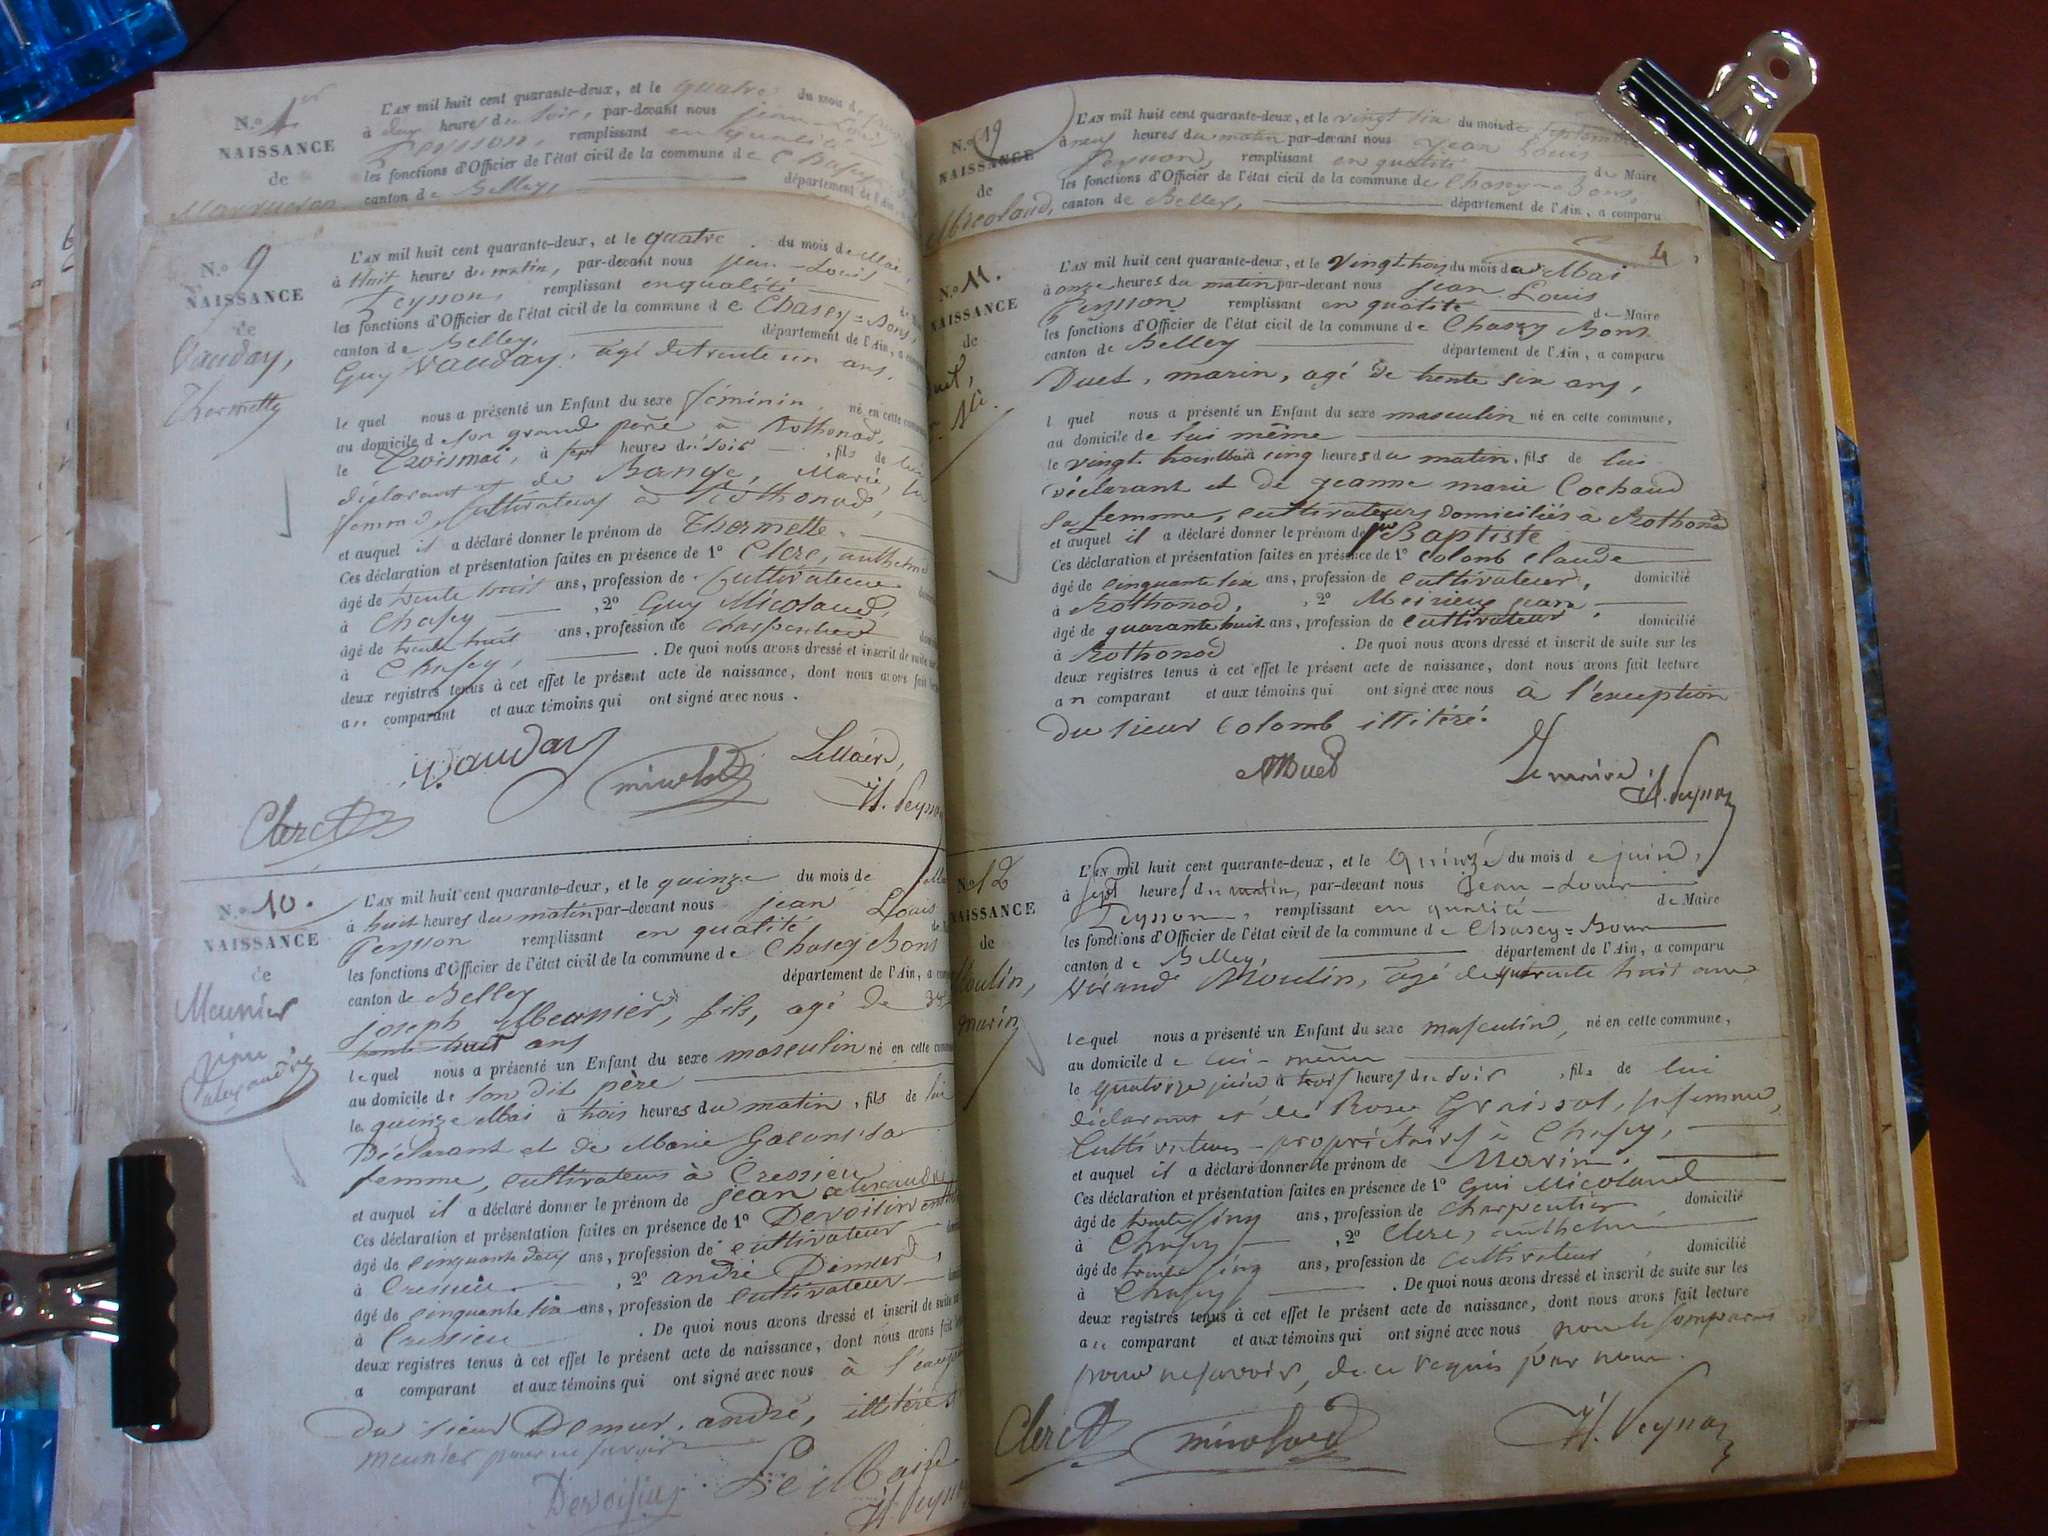 N.o 1er
NAISSANCE
de
L'AN mil huit cent quarante-deux, et le quatre du mois de
à heures du soir, par-devant nous jean-Louis
Peysson, remplissant en qualité
les fonctions d'Officier de l'état civil de la commune de Chasey
canton de Belley, département de l'Ain
N.o 9
NAISSANCE
de
Vauday,
Thermette
L'AN mil huit cent quarante-deux, et le quatre du mois de Mai,
à Huit heures du matin, par-devant nous jean-Louis
Peysson, remplissant en qualité
les fonctions d'Officier de l'état civil de la commune de Chasey=Bons,
canton de Belley, département de l'Ain, a
Guy Vauday, agé de trente un ans,
le quel nous a présenté un Enfant du sexe féminin, né en cette
au domicile de son grand père à Rothonod,
le Trois mai, à sept heures du soir, fils de lui
déclarant et de Bange, Marie, sa
femme, cultivateurs à Rothonod,
et auquel il a déclaré donner le prénom de Thermette
Ces déclaration et présentation faites en présence de 1o Clerc, anthelme
âgé de trente trois ans, profession de cultivateur
à Chasey, 2o Guy Micoland,
âgé de trente huit ans, profession de charpentier
à Chasey, . De quoi nous avons dressé et inscrit de suite sur
deux registres tenus à cet effet le présent acte de naissance, dont nous avons fait
au comparant et aux témoins qui ont signé avec nous.
Vauday
Le Maire,
micoland
J.L. Peysson
Clerc
N.o 10.
NAISSANCE
de
Meunier
jean
alexandre
L'AN mil huit cent quarante-deux, et le quinze du mois de Mai
à huit heures du matin par-devant nous jean Louis
Peysson remplissant en qualité
les fonctions d'Officier de l'état civil de la commune de Chasey Bons
canton de Belley département de l'Ain, a
joseph Meunier, fils, agé de
trente-huit ans
le quel nous a présenté un Enfant du sexe masculin né en cette
au domicile de son dit père
le quinze Mai à trois heures du matin, fils de lui
Déclarant et de Marie Gacons sa
femme, cultivateurs à Cressieu
et auquel il a déclaré donner le prénom de jean alexandre
Ces déclaration et présentation faites en présence de 1o Devoisin
âgé de cinquante deux ans, profession de cultivateur
à Cressieu, 2o andré Demur,
âgé de cinquante six ans, profession de cultivateur
à Cressieu . De quoi nous avons dressé et inscrit de suite
deux registres tenus à cet effet le présent acte de naissance, dont nous avons fait
a comparant et aux témoins qui ont signé avec nous à
du sieur Demur, andré, illitéré
meunier pour ne savoir
Devoisin Le Maire
J.L. Peysson
N.o 19
NAISSANCE
de
Micoland,
L'AN mil huit cent quarante-deux, et le vingt six du mois de Septembre
à neuf heures du matin par-devant nous jean Louis
Peysson, remplissant en qualité de Maire
les fonctions d'Officier de l'état civil de la commune de Chasey=Bons,
canton de Belley, département de l'Ain, a comparu
4
N.o 11.
NAISSANCE
de
L'AN mil huit cent quarante-deux, et le Vingt trois du mois de Mai
à onze heures du matin par-devant nous jean Louis
Peysson remplissant en qualité de Maire
les fonctions d'Officier de l'état civil de la commune de Chasey Bons
canton de Belley département de l'Ain, a comparu
Duet, marin, agé de trente six ans,
l quel nous a présenté un Enfant du sexe masculin né en cette commune,
au domicile de lui même
le vingt trois Mai à cinq heures du matin, fils de lui
déclarant et de jeanne marie Cochaud
sa femme, cultivateurs domiciliés à Rothonod
et auquel il a déclaré donner le prénom de Baptiste
Ces déclaration et présentation faites en présence de 1o colomb claude
âgé de cinquante six ans, profession de cultivateur, domicilié
à Rothonod, 2o Meirieux jean
âgé de quarante huit ans, profession de cultivateur, domicilié
à Rothonod . De quoi nous avons dressé et inscrit de suite sur les
deux registres tenus à cet effet le présent acte de naissance, dont nous avons fait lecture
au comparant et aux témoins qui ont signé avec nous à l'exception
du sieur Colomb illitéré.
MDuet
Le maire
J.L. Peysson
No 12
NAISSANCE
de
Moulin,
marin
L'AN mil huit cent quarante-deux, et le Quinze du mois de juin,
à sept heures du matin, par-devant nous Jean-Louis
Peysson, remplissant en qualité de Maire
les fonctions d'Officier de l'état civil de la commune de Chasey=Bons
canton de Belley, département de l'Ain, a comparu
Moulin, agé de trente huit ans
le quel nous a présenté un Enfant du sexe masculin, né en cette commune,
au domicile de lui-même
le quatorze juin à trois heures du soir, fils de lui
déclarant et de Rose Graissot, sa femme,
Cultivateurs propriétaires à Chasey,
et auquel il a déclaré donner le prénom de Marin.
Ces déclaration et présentation faites en présence de 1o Gui Micoland
âgé de trente cinq ans, profession de charpentier domicilié
à Chasey, 2o Clerc, anthelme
âgé de trente cinq ans, profession de cultivateur, domicilié
à Chasey . De quoi nous avons dressé et inscrit de suite sur les
deux registres tenus à cet effet le présent acte de naissance, dont nous avons fait lecture
au comparant et aux témoins qui ont signé avec nous non le comparant
pour ne savoir, de ce requis par nous.
Clerc micoland J.L. Peysson